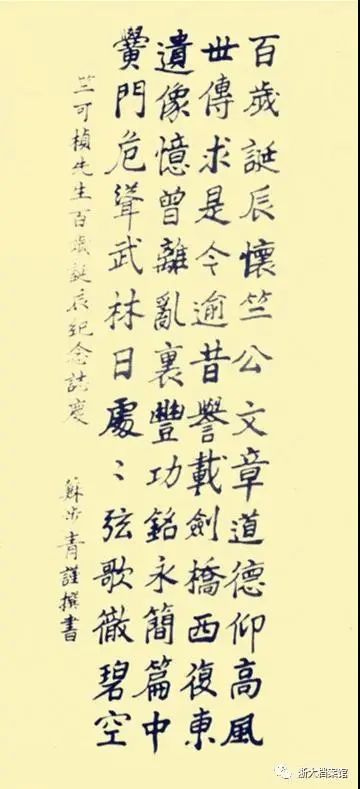 百歲誕辰懷竺公文章道德仰高風
世傳求是今逾昔譽載劍橋西復東
遺像憶曾離亂裏豐功銘永簡篇中
黌門危聳武林日處〻弦歌徹碧空
竺可楨先生百歲誕辰紀念誌慶
蘇步青謹撰書
浙大档案馆